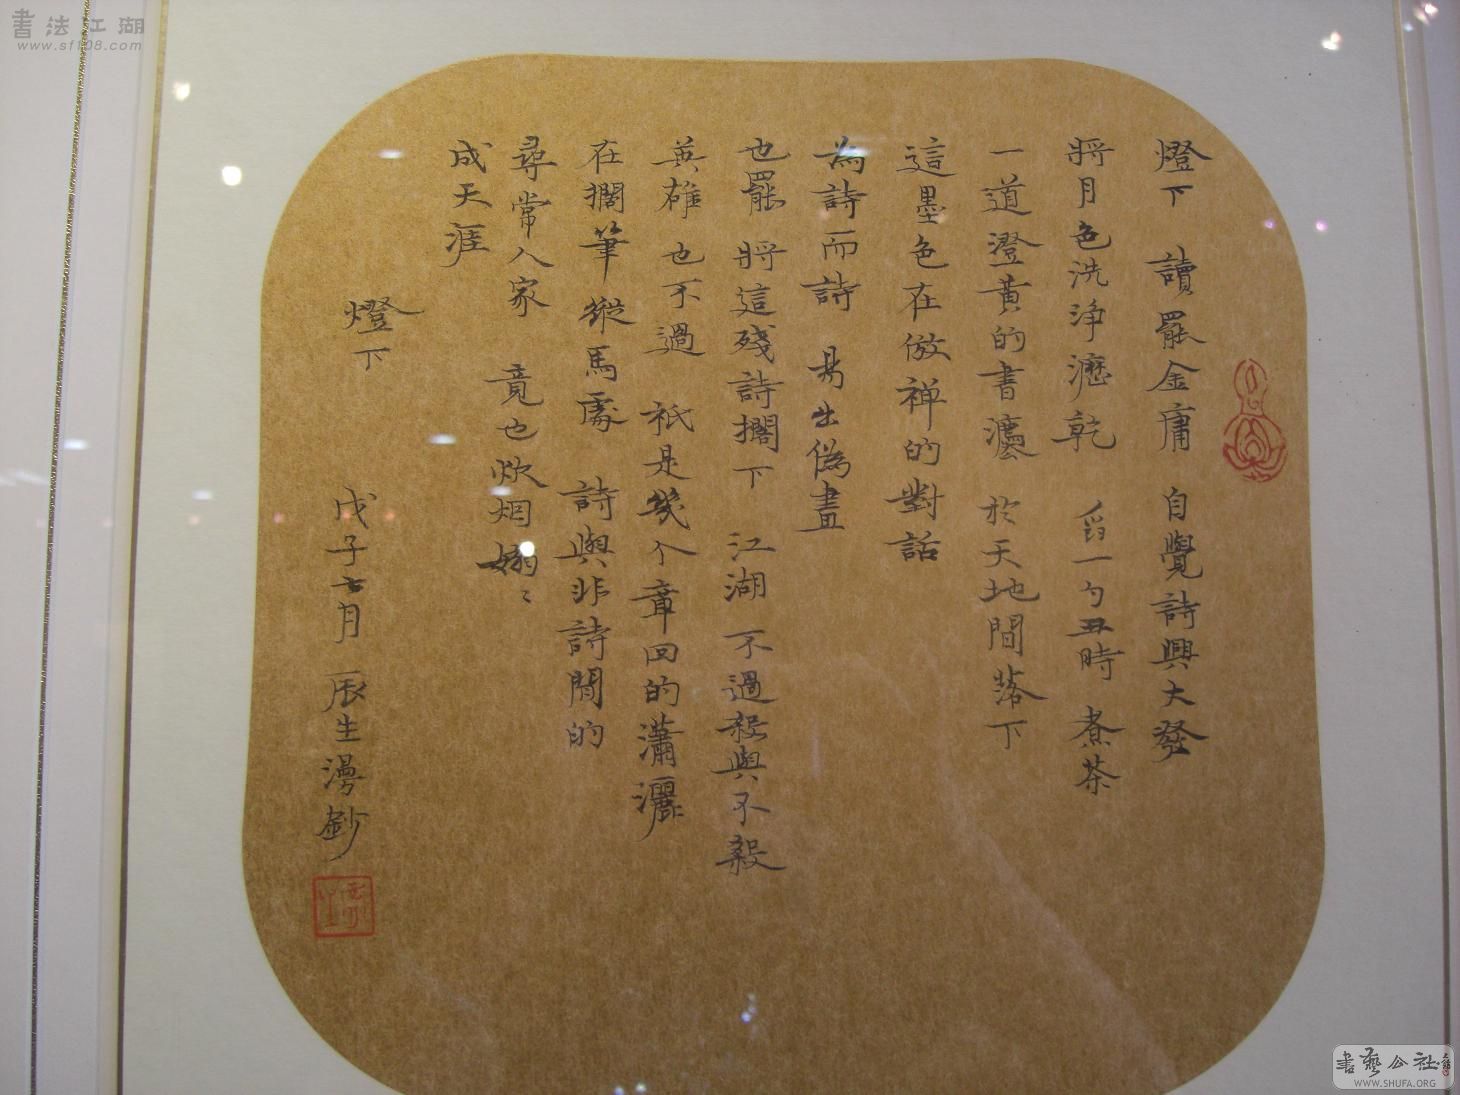 燈下 讀罷金庸 自覺詩興大發
將月色洗淨瀝乾 舀一勺丑時 煮茶
一道澄黃的書瀍 於天地間落下
這墨色在倣禅的對話
為詩而詩 易出偽畫
也罷 將這殘詩擱下 江湖 不過殺與不殺
英雄 也不過 祇是幾个章回的瀟灑
在擱筆縱馬處 詩與非詩間的
尋常人家 竟也炊烟嫋〻
成天涯
燈下
戊子七月 辰生漫鈔
書法江湖
www.sf108.com
書藝公社
WWW.SHUFA.ORG